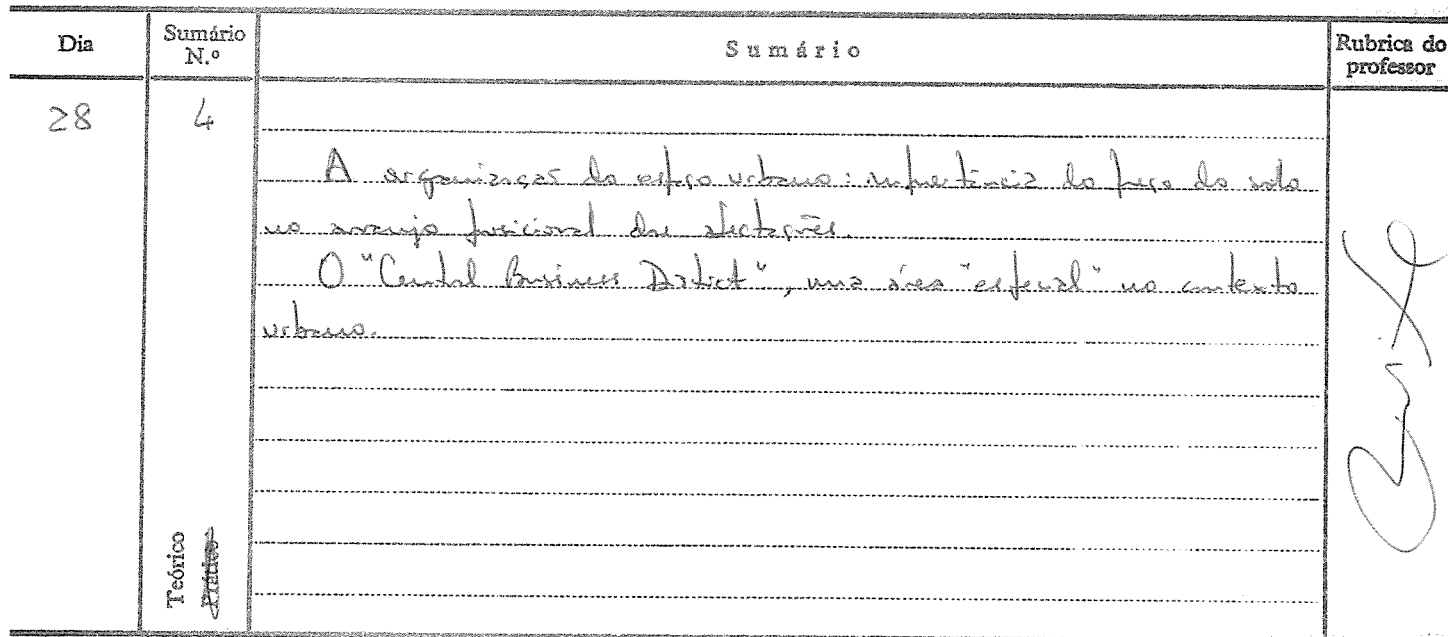 Dia
Sumário N.º
Sumário
Rubrica do professor
28
4
A organização do espaço urbano: importância do preço do solo
no arranjo posicional das afectações.
O "Central Business District", uma área "especial" no contexto
urbano.
Teórico
Prático